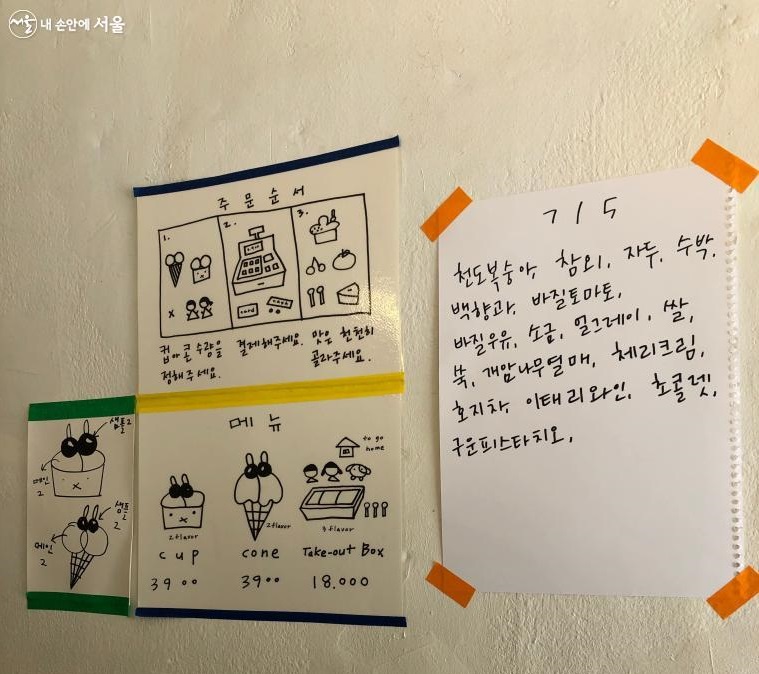 서울 내 손안에 서울
주문순서
1.
2.
3.
card
cash
x
컵과 콘 수량을
정해주세요.
결제해주세요.
맛은 천천히
골라주세요.
메뉴
to go
home
2 flavor
2 flavor
3 flavor
cup
cone
Take-out Box
3900
3900
18.000
샘플2
메인
2
샘플
2
메인
2
7/5
천도복숭아, 참외, 자두, 수박,
백향과, 바질토마토,
바질우유, 소금, 얼그레이, 쌀,
쑥, 개암나무열매, 체리크림,
호지차, 이태리와인, 초콜렛,
구운피스타치오,